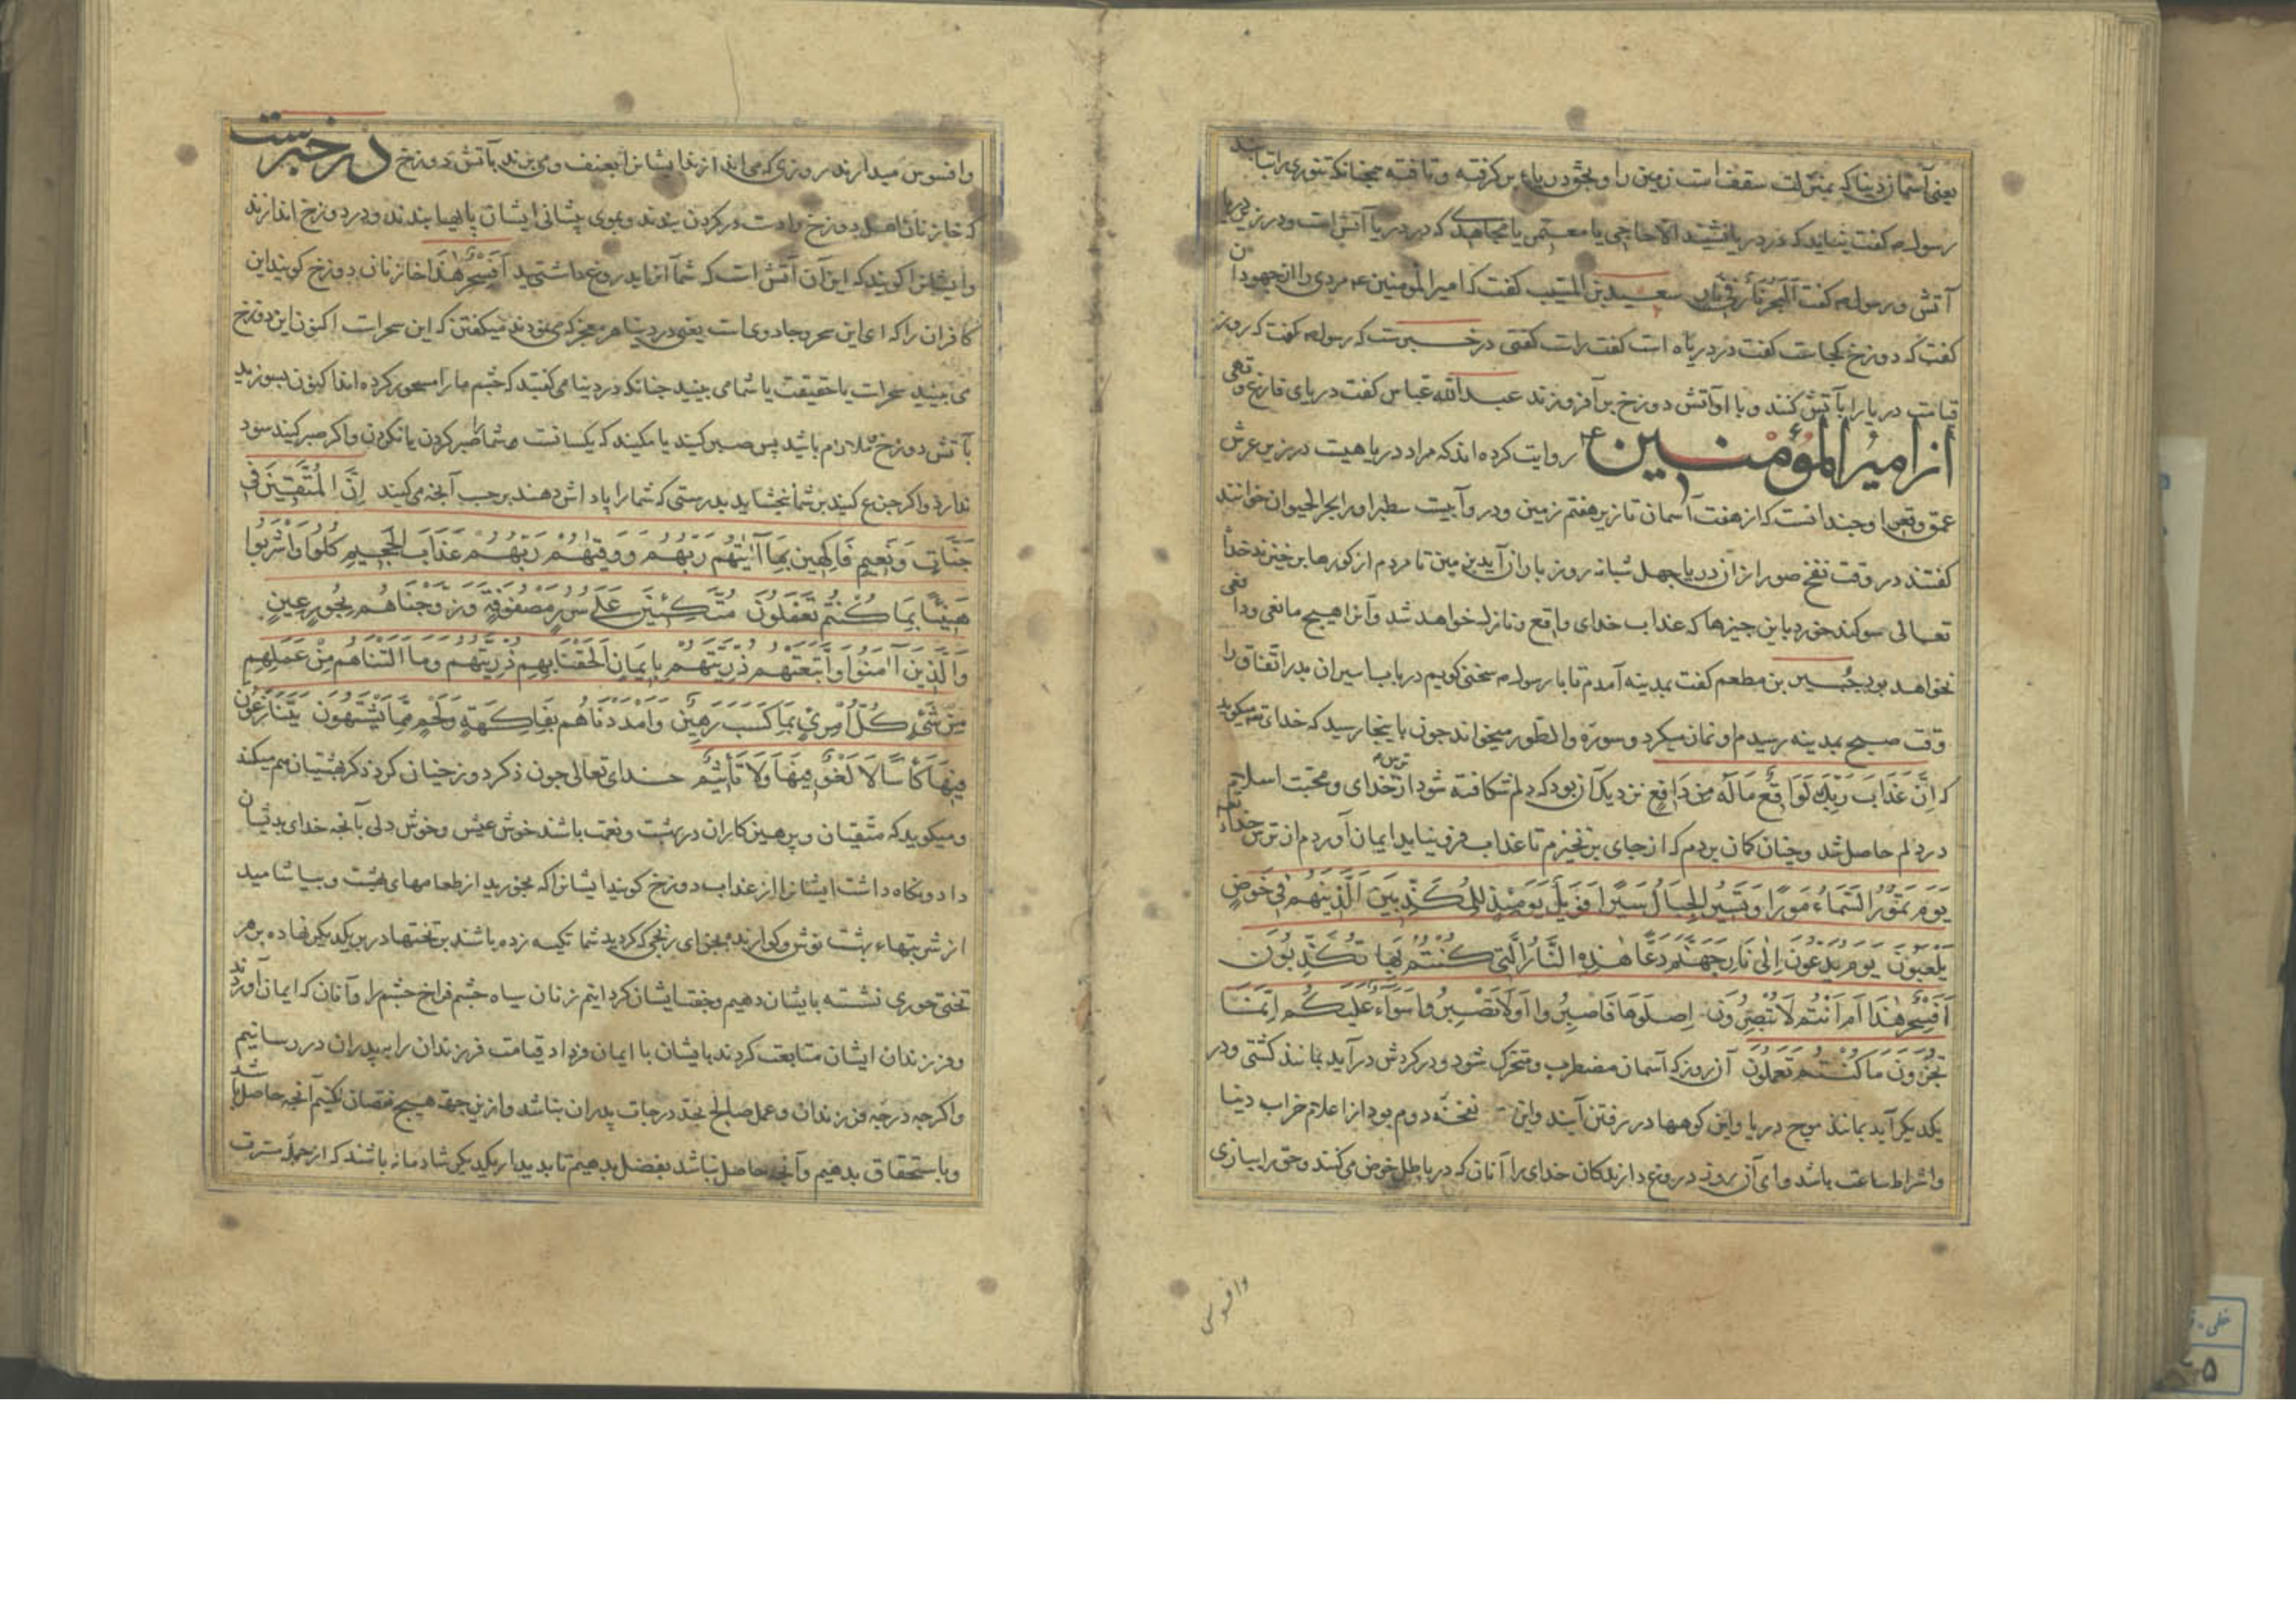 یعنی آسمان دنیا که بمنزلت سقف است زمین را و بحق دریاء برگرفته و تافته همچنانکه تنوری را تابند
رسول ص کفت نباید که در دریا نشیند الا حاجی یا معتمر یا مجاهدی که در دریا آتش است و در زیر دریا
آتش و رسول ص کفت البحر نار فی نار سعید بن المسیب کفت که امیر المومنین ع مردی را از جهودان
کفت که دوزخ کجاست کفت در دریاه است کفت راست کفتی در خبرست که رسول ص کفت که روز
قیامت دریا را باتش کنند و با او آتش دوزخ برافروزند عبدالله عباس کفت دریای فارغ و تهی
از امیر المؤمنین ع روایت کرده اند که مراد دریاهیست در زیر عرش
عمق و قعر او چندانست که از هفت آسمان تا زیر هفتم زمین و در و آبیست سطبر او را بحر الحیوان خوانند
کفتند در وقت نفخ صور از آن دریا چهل شبانه روز باران آید بزمین تا مردم از کورها برخیزند خدا
تعالی سوکند خورد باین چیزها که عذاب خدای واقع و نازله خواهد شد و آنرا هیچ مانعی و دافعی
نخواهد بود جبیر بن مطعم کفت بمدینه آمدم تا با رسول ص سخنی کویم در باب اسیران بدر اتفاق را
وقت صبح بمدینه رسیدم او نماز میکرد و سورة والطور میخواند چون باینجا رسید که خدای تع میکوید
که اِنَّ عَذَابَ رَبِّكَ لَوَاقِعٌ مَالَهُ مِن دَافِعٍ نزدیک آن بود که دلم شکافته شود از ترس خدای و محبت اسلام
در دلم حاصل شد و چنان کمان بردم که از جای برنخیزم تا عذاب فرونیاید ایمان آوردم از ترس خدا
یَوْمَ تَمُورُ السَّمَاءُ مَوْرًا وَتَسِیرُ الْجِبَالُ سَیْرًا فَوَیْلٌ یَوْمَئِذٍ لِلْمُکَذِّبِینَ الَّذِینَ هُمْ فِی خَوْضٍ
یَلْعَبُونَ یَوْمَ یُدَعُّونَ اِلٰی نَارِ جَهَنَّمَ دَعًّا هٰذِهِ النَّارُ الَّتِی کُنْتُمْ بِهَا تُکَذِّبُونَ
اَفَسِحْرٌ هٰذَا اَمْ اَنْتُمْ لَا تُبْصِرُونَ اِصْلَوْهَا فَاصْبِرُوا اَوْ لَا تَصْبِرُوا سَوَاءٌ عَلَیْکُمْ اِنَّمَا
تُجْزَوْنَ مَا کُنْتُمْ تَعْمَلُونَ آن روز که آسمان مضطرب و متحرک شود و در کردش درآید مانند کشتی و در
یکدیکر آید مانند موج دریا و این کوهها در رفتن آیند و این نفخه دوم بود از اعلام خراب دنیا
و اشراط ساعت باشد وای آن روز دروغ دارندکان خدای را آنان که در باطل خوض می‌کنند و حق را ببازی
وافسوس
وافسوس میدارند روزی که می‌رانند ایشانرا بعنف و می‌برند باتش دوزخ در خبرست
که خازنان اهل دوزخ را دست در کردن بندند و بموی پیشانی ایشان پایها بندند و در دوزخ اندازند
و ایشانرا کویند که این آن آتش است که شما آنرا بدروغ داشتید اَفَسِحْرٌ هٰذَا خازنان دوزخ کویند این
کافران را که ای این سحر و جادوی است یعنی در دنیا هر معجز که می‌نمودند میکفتن که این سحر است اکنون این دوزخ
می‌بینید سحر است یا حقیقت یا شما می بینید چنانکه در دنیا می کفتید که چشم ما را مسحور کرده اند اکنون بسوزید
باتش دوزخ ملازم باشید پس صبر کنید یا مکنید که یکسانست شما را صبر کردن یا نکردن و اکر صبر کنید سود
ندارد و اکر جزع کنید بر شما نبخشاید بدرستی که شما را پاداش دهند بر حسب آنچه می‌کنید اِنَّ الْمُتَّقِینَ فِی
جَنَّاتٍ وَنَعِیمٍ فَاکِهِینَ بِمَا آتٰیهُمْ رَبُّهُمْ وَوَقٰیهُمْ رَبُّهُمْ عَذَابَ الْجَحِیمِ کُلُوا وَاشْرَبُوا
هَنِیئًا بِمَا کُنْتُمْ تَعْمَلُونَ مُتَّکِئِینَ عَلٰی سُرُرٍ مَصْفُوفَةٍ وَزَوَّجْنَاهُمْ بِحُورٍ عِینٍ
وَالَّذِینَ آمَنُوا وَاتَّبَعَتْهُمْ ذُرِّیَّتُهُمْ بِاِیمَانٍ اَلْحَقْنَا بِهِمْ ذُرِّیَّتَهُمْ وَمَا اَلَتْنَاهُمْ مِنْ عَمَلِهِمْ
مِنْ شَیْءٍ کُلُّ امْرِئٍ بِمَا کَسَبَ رَهِینٌ وَاَمْدَدْنَاهُمْ بِفَاکِهَةٍ وَلَحْمٍ مِمَّا یَشْتَهُونَ یَتَنَازَعُونَ
فِیهَا کَأْسًا لَا لَغْوٌ فِیهَا وَلَا تَأْثِیمٌ خدای تعالی چون ذکر دوزخیان کرد ذکر بهشتیان هم میکند
و میکوید که متقیان و پرهیزکاران در بهشت و نعمت باشند خوش عیش و خوش دلی بآنچه خدای بدیشان
داد و نکاه داشت ایشانرا از عذاب دوزخ کویند ایشانرا که بخورید از طعامهای بهشت و بیاشامید
از شربتهاء بهشت نوش و کوارنده بجزای رنجی که کردید شما تکیه زده باشند بر تختها در بر یکدیکر نهاده بر هر
تختی حوری نشسته بایشان دهیم و جفت ایشان کردانیم زنان سیاه چشم فراخ چشم را و آنان که ایمان آوردند
و فرزندان ایشان متابعت کردند بایشان با ایمان فردا قیامت فرزندان را به پدران در رسانیم
و اکرچه درجه فرزندان و عمل صالح بحد درجات پدران نباشد و از این جهة هیچ نقصان نکنیم آنچه حاصل باشد
و باستحقاق بدهیم و آنچه حاصل نباشد بفضل بدهیم تا بدیدار یکدیکر شادمانه باشند که از جمله مسرت